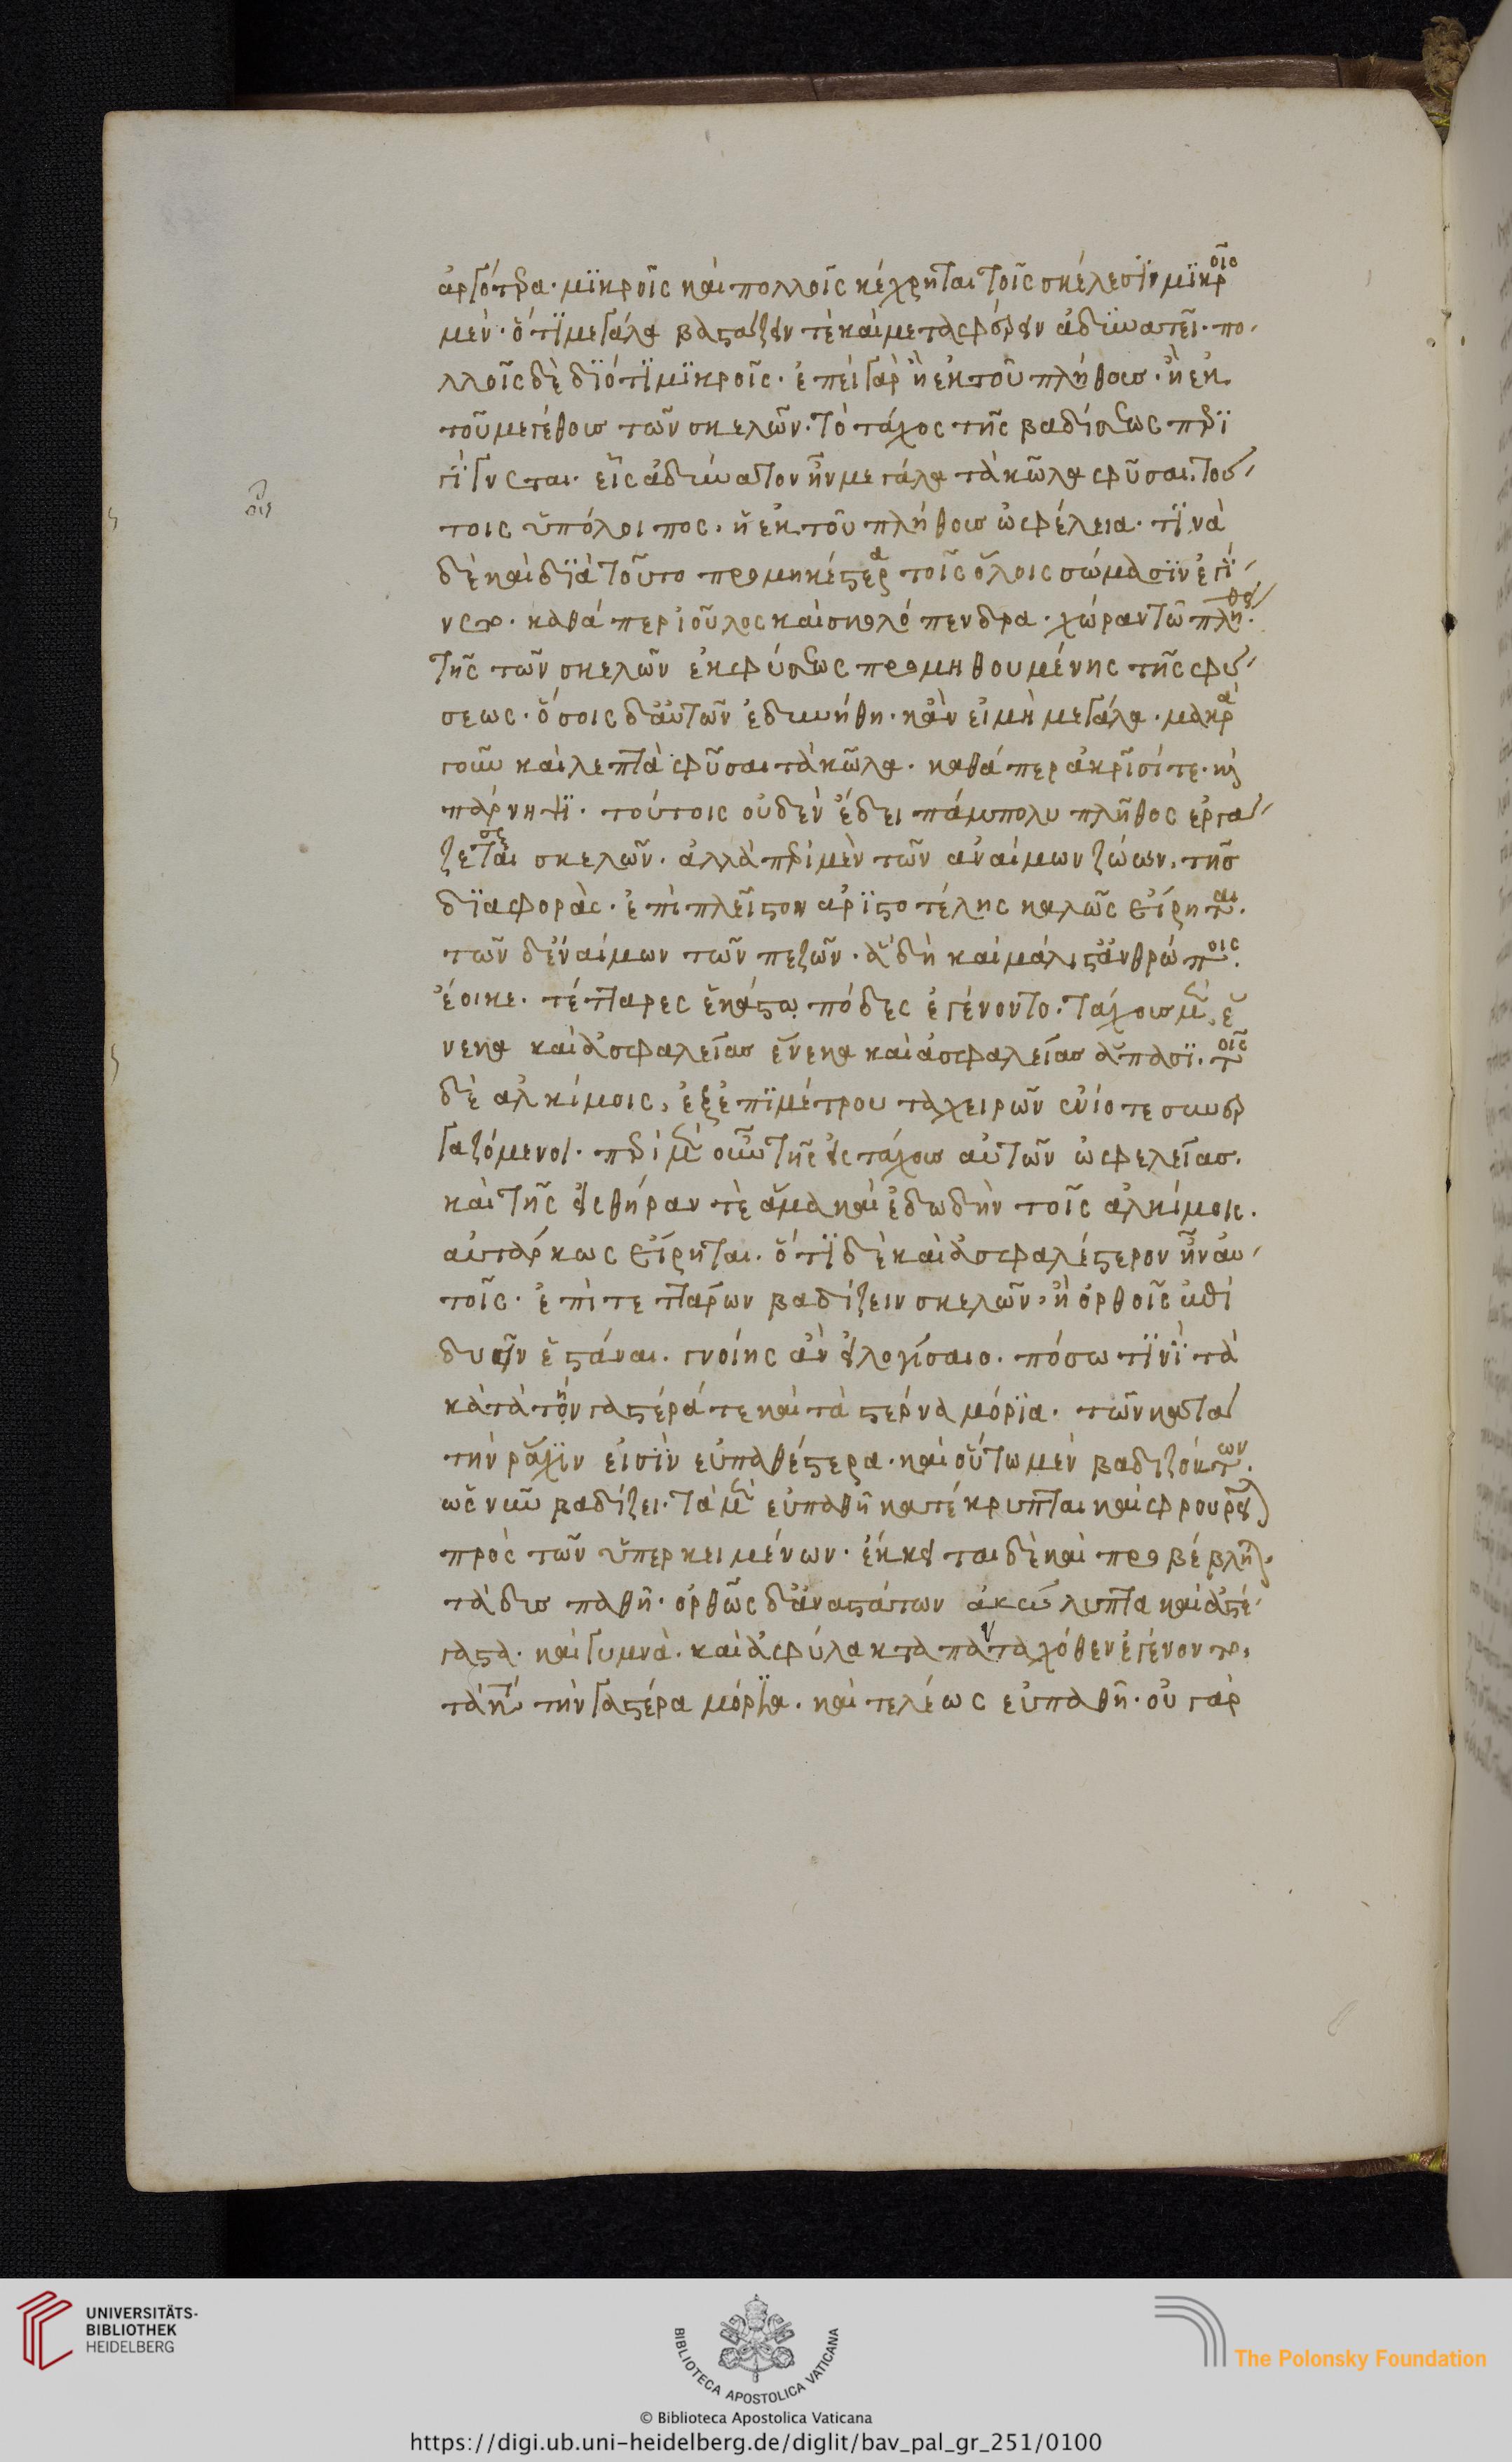 ἀργότερα· μϊκροῖς καὶ πολλοῖς κέχρηται τοῖς σκέλεσϊν μϊκροῖς
μὲν· ὅτϊ μεγάλα βαστάζειν τὲ καὶ μεταφέρειν ἀδυνατεῖ· πο-
λλοῖς δὲ δϊότϊ μϊκροῖς· ἐπεὶ γὰρ ἢ ἐκ τοῦ πλήθους· ἢ ἐκ
τοῦ μεγέθους τῶν σκελῶν· τὸ τάχος τῆς βαδίσεως περϊ
γίγνεται· εἷς ἀδύνατον ἦν μεγάλα τὰ κῶλα φῦσαι· τού-
τοις ὑπόλοιπος· ἡ ἐκ τοῦ πλήθους ὠφέλεια· τϊνὰ
δὲ καὶ δϊὰ τοῦτο προμηκέστερα τοῖς ὅλοις σώμασϊν ἐγί-
νετο· καθάπερ ἰοῦλος καὶ σκολόπενδρα· χώραν τῶ πλήθει
τῆς τῶν σκελῶν ἐκφύσεως προμηθουμένης τῆς φύ-
σεως· ὅσοις δ' αὐτῶν ἐδυνήθη· κἂν εἰ μὴ μεγάλα· μακρὰ
γοῦν καὶ λεπτὰ φῦσαι τὰ κῶλα· καθάπερ ἀκρϊσί τε· καὶ
πάρνητϊ· τούτοις οὐδὲν ἔδει πάμπολυ πλῆθος ἐργά-
ζεσται σκελῶν· ἀλλὰ περὶ μὲν τῶν ἀναίμων ζώων· τῆς
δϊαφορὰς· ἐπὶ πλεῖστον ἀρϊστοτέλης καλῶς εἴρηται·
τῶν δ' ἐναίμων τῶν πεζῶν· ἃ δὴ καὶ μάλιστ' ἀνθρώποις
ἔοικε· τέτταρες ἑκάστω πόδες ἐγένοντο· τάχους μὲν ἕ
νεκα καὶ ἀσφαλείας ἕνεκα καὶ ἀσφαλείας ἅπασϊ· τοῖς
δὲ ἀλκίμοις, ἐξ ἐπϊμέτρου τα χειρῶν ἐνίοτε συνερ
γαζόμενοι· περὶ μὲν οὖν τῆς εἰς τάχους αὐτῶν ὠφελείας·
καὶ τῆς εἰς θήραν τὲ ἅμα καὶ ἐδωδὴν τοῖς ἀλκίμοις·
αὐτάρκως εἴρηται· ὅτϊ δὲ καὶ ἀσφαλέστερον ἦν αὐ-
τοῖς· ἐπὶ τεττάρων βαδίζειν σκελῶν, ἢ ὀρθοῖς ἐπὶ
δυοῖν ἑστάναι· γνοίης ἂν εἰ λογίσαιο· πόσω τϊνὶ τὰ
κατὰ τὴν γαστέρά τε καὶ τὰ στέρνα μόρϊα· τῶν κατὰ
τὴν ῥάχϊν εἰσὶν εὐπαθέστερα· καὶ οὕτω μὲν βαδιζόντων·
ὡς νῦν βαδίζει· τὰ μὲν εὐπαθῆ κατέκρυπται καὶ φρουρεῖται
πρὸς τῶν ὑπερκειμένων· ἔκκειται δὲ καὶ προβέβληται
τὰ δυσπαθῆ· ὀρθῶς δ' ἀναστάντων ἀκάλυπτα καὶ ἀστέ-
γαστα· καὶ γυμνὰ· καὶ ἀφύλακτα πανταχόθεν ἐγένοντο,
τὰ κατὰ τὴν γαστέρα μόρϊα· καὶ τελέως εὐπαθῆ· οὐ γὰρ
UNIVERSITÄTS-
BIBLIOTHEK
HEIDELBERG
BIBLIOTECA APOSTOLICA VATICANA
The Polonsky Foundation
© Biblioteca Apostolica Vaticana
https://digi.ub.uni-heidelberg.de/diglit/bav_pal_gr_251/0100